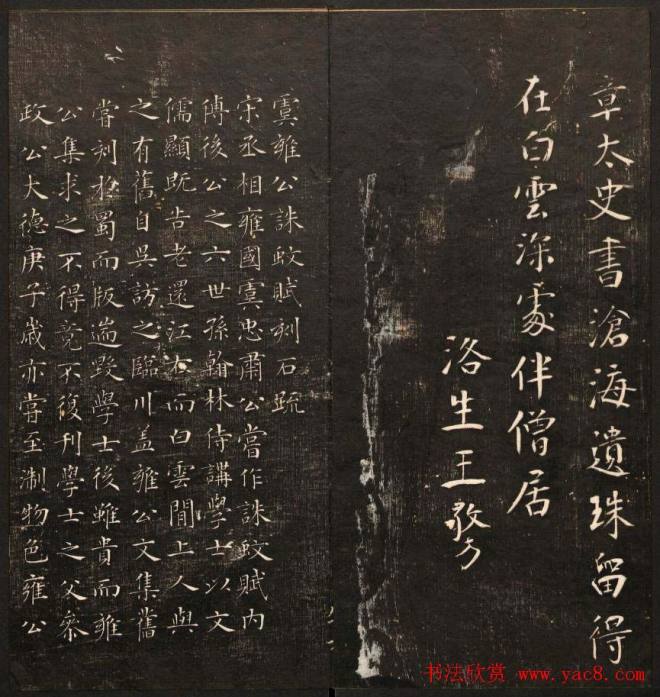 章太史書滄海遺珠留得
在白雲深處伴僧居
洛生王發
虞雍公誅蚊賦刻石疏
宋丞相雍國虞忠肅公嘗作誅蚊賦內
傅後公之六世孫翰林侍講學士以文
儒顯既告老還江右而白雲閒上人與
之有舊自吳訪之臨川盖雍公文集舊
嘗刻於蜀而版遄毀學士後雖貴而雍
公集求之不得竟不復刊學士之父參
政公大德庚子歲亦嘗至淛物色雍公
书法欣赏 www.yac8.com